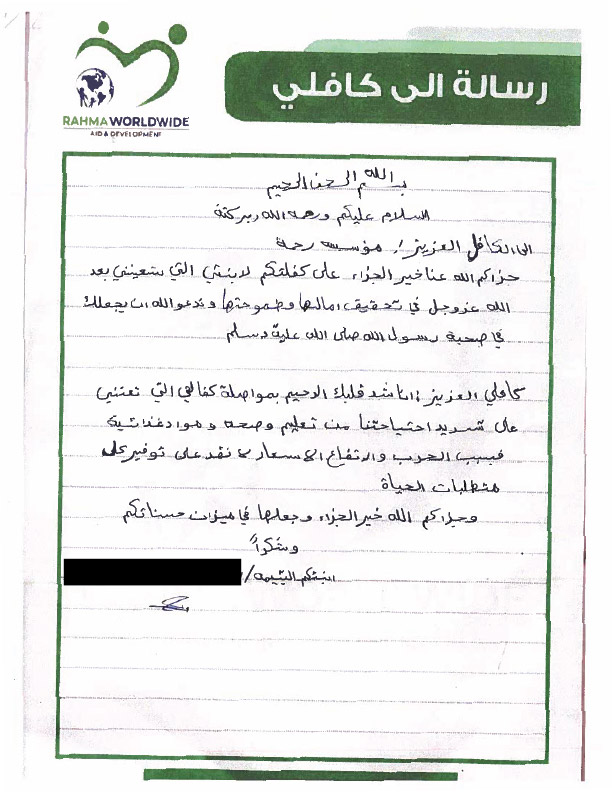 رسالة الى كافلي
RAHMA WORLDWIDE
AID & DEVELOPMENT
بسم الله الرحمن الرحيم
السلام عليكم ورحمة الله وبركتة
الى الكافل العزيز / مؤسسه رحمة
جزاكم الله عنا خير الجزاء على كفلتكم لابنتي التي ستعينني بعد
الله عزوجل في تحقيق امالها وطموحتها وندعو الله ان يجعلك
في صحبة رسول الله صلى الله علية وسلم
كافلي العزيز : اناشد قلبك الرحيم بمواصلة كفالتي التي تعتني
على تسديد احتياجتنا من تعليم وصحه و مواد غذائية
فبسبب الحرب والارتفاع الاسعار لا نقد على توفير كل
متطلبات الحياة
وجزاكم الله خير الجزاء وجعلها في ميزان حسناتكم
وشكراً
ابنتكم اليتيمه /